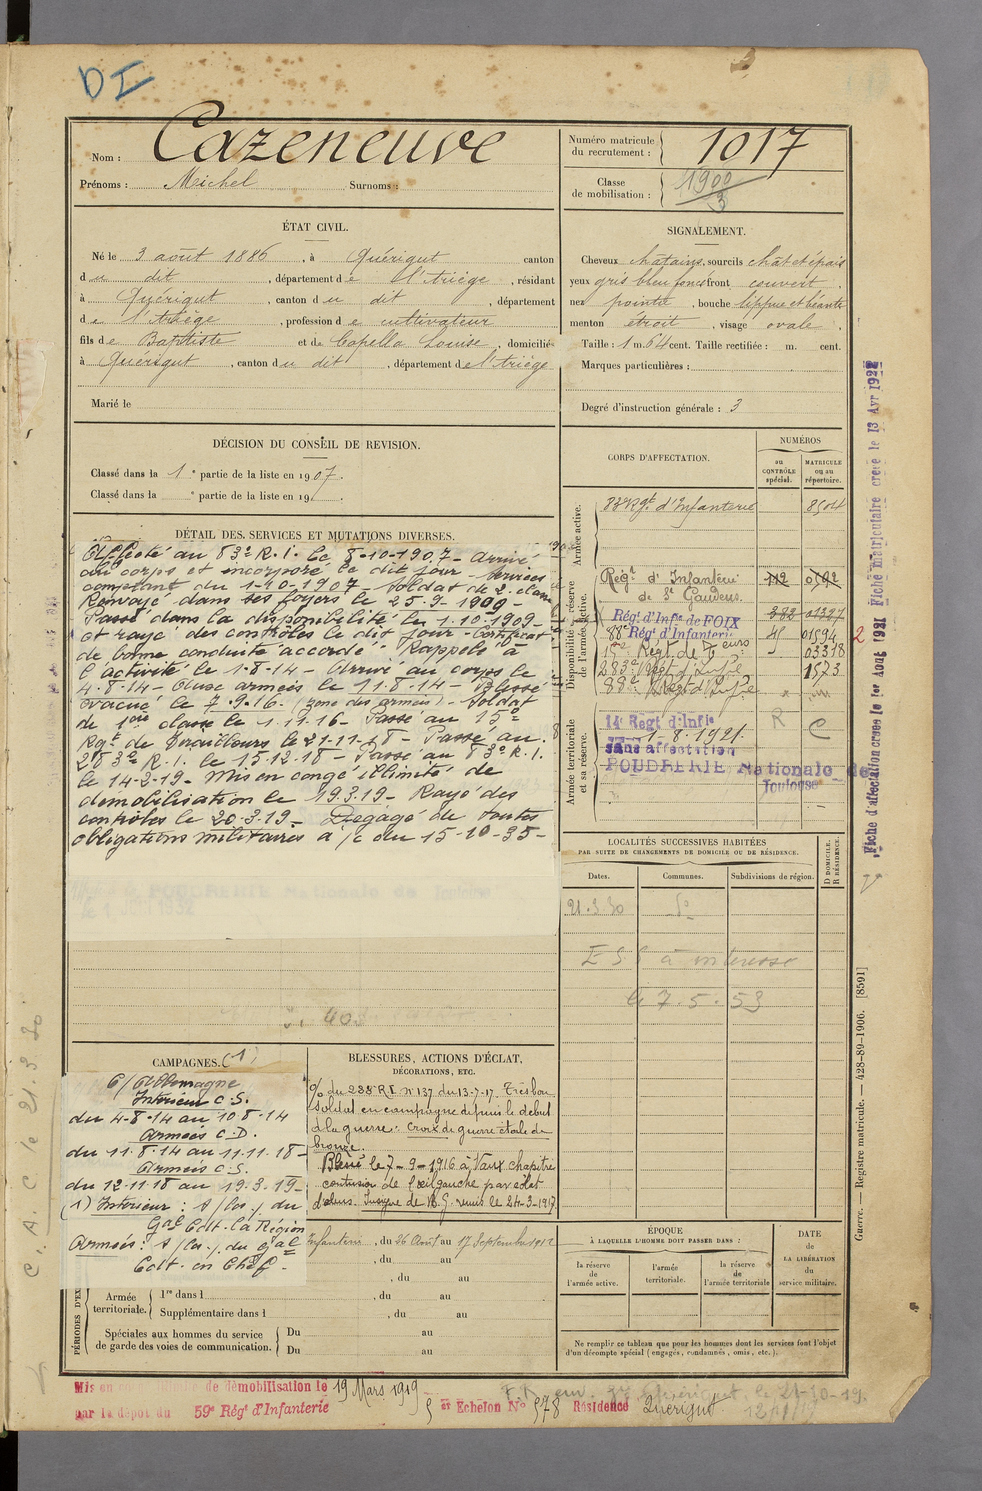 DI
Nom : Cazeneuve
Prénoms : Michel Surnoms :
Numéro matricule du recrutement : 1017
Classe de mobilisation : 1900/3
ÉTAT CIVIL.
Né le 3 août 1886, à Quérigut canton
du dit, département de l'Ariège, résidant
à Quérigut, canton du dit, département
de l'Ariège, profession de cultivateur
fils de Baptiste et de Capella Louise, domicilié
à Quérigut, canton du dit, département de l'Ariège
Marié le
SIGNALEMENT.
Cheveux châtains, sourcils chât et épais
yeux gris bleu foncé front couvert,
nez pointu, bouche lippue et béante
menton étroit, visage ovale.
Taille : 1 m. 64 cent. Taille rectifiée : m. cent.
Marques particulières :
Degré d'instruction générale : 3
DÉCISION DU CONSEIL DE REVISION.
Classé dans la 1e partie de la liste en 1907.
Classé dans la e partie de la liste en 19 .
DÉTAIL DES SERVICES ET MUTATIONS DIVERSES.
Affecté au 83e R.I. le 8-10-1907 - Arrivé
au corps et incorporé le dit jour - Services
comptant du 1-10-1907 - Soldat de 2e classe
Renvoyé dans ses foyers le 25-9-1909 -
Passé dans la disponibilité le 1.10.1909 -
et rayé des contrôles le dit jour - Certificat
de bonne conduite accordé - Rappelé à
l'activité le 1-8-14 - Arrivé au corps le
4-8-14 - Aux armées le 11.8.14 - Blessé
évacué le 7.9.16. (zone des armées) - Soldat
de 1ère classe le 1.11.16 - Passé au 15e
Rgt de Tirailleurs le 21-11-18 - Passé au
283e R.I. le 15.12.18 - Passé au 83e R.I.
le 14-2-19 - Mis en congé illimité de
démobilisation le 19.3.19 - Rayé des
contrôles le 20-3-19 - Dégagé de toutes
obligations militaires à /c du 15-10-35 -
POUDRERIE Nationale de Toulouse
CORPS D'AFFECTATION.
NUMÉROS
au CONTRÔLE spécial.
MATRICULE ou au répertoire.
Armée active.
83 Rgt. d'Infanterie 8504
Disponibilité et réserve de l'armée active.
Régt d'Infanterie 112 0592
de St Gaudens.
Rég. d'Infie de FOIX 382 01327
88e Rég. d'Infanterie 01594
15e Régt. de Teurs 03318
283e Régt d'Infie 1573
Armée territoriale et sa réserve.
14e Régt d'Infie R C
1-8-1921.
sans affectation
POUDRERIE Nationale de
Toulouse
Fiche d'affectation créée le 1er Août 1921 Fiche matriculaire créée le 13 Avr 1922
2
LOCALITÉS SUCCESSIVES HABITÉES
PAR SUITE DE CHANGEMENTS DE DOMICILE OU DE RÉSIDENCE.
Dates. Communes. Subdivisions de région. D DOMICILE. R RÉSIDENCE.
21.3.30
E S S à intéressé
le 7.5.53
Guerre. — Registre matricule. — 428-89-1906. [8591]
CAMPAGNES. (1)
C/Allemagne
Intérieur C.S.
du 4-8-14 au 10.8.14
Armées C.D.
du 11.8.14 au 11.11.18 -
Armées C.S.
du 12-11-18 au 19.3.19 -
(1) Intérieur : s/les . du
Gal Cdt. la Région
Armées : s/les . du Gal
Cdt. en Chef -
BLESSURES, ACTIONS D'ÉCLAT,
DÉCORATIONS, ETC.
du 288 RI No 137 du 13-7-17. Très bon
soldat en campagne depuis le début
de la guerre : Croix de guerre étoile de
bronze.
Blessé le 7-9-1916 à Vaux chapitre
contusion de l'œil gauche par éclat
d'obus. Insigne de B.G. remis le 24-3-1917
Infanterie, du 26 Août au 17 Septembre 1912
, du au
, du au
Armée territoriale. 1re dans 1 , du au
Supplémentaire dans 1 , du au
Spéciales aux hommes du service de garde des voies de communication. Du au
Du au
PÉRIODES D'EX
ÉPOQUE
À LAQUELLE L'HOMME DOIT PASSER DANS :
la réserve de l'armée active.
l'armée territoriale.
la réserve de l'armée territoriale
DATE de LA LIBÉRATION du service militaire.
Ne remplir ce tableau que pour les hommes dont les services font l'objet
d'un décompte spécial (engagés, condamnés, omis, etc.).
Mis en congé illimité de démobilisation le 19 Mars 1919
par le dépôt du 59e Rég. d'Infanterie 5 er Echelon No 578 Résidence Quérigut
C. A. C le 21.3.30.